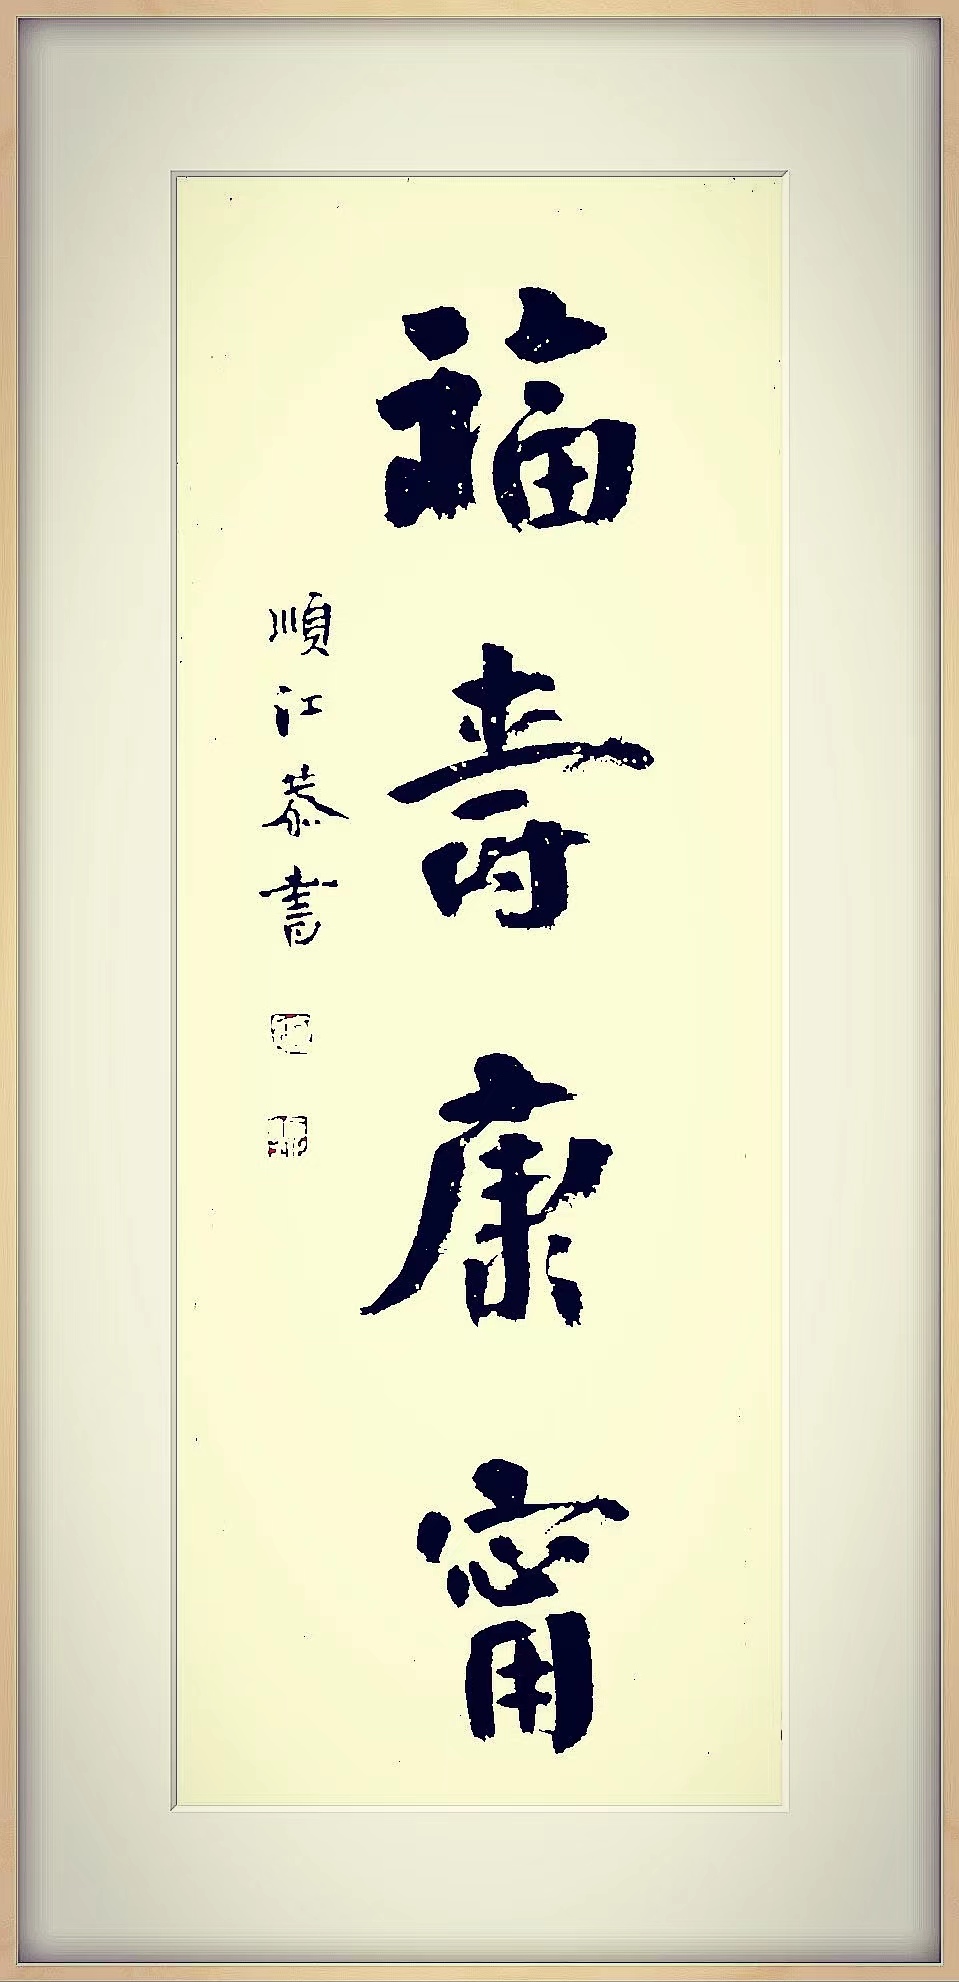 福壽康甯
順江恭書